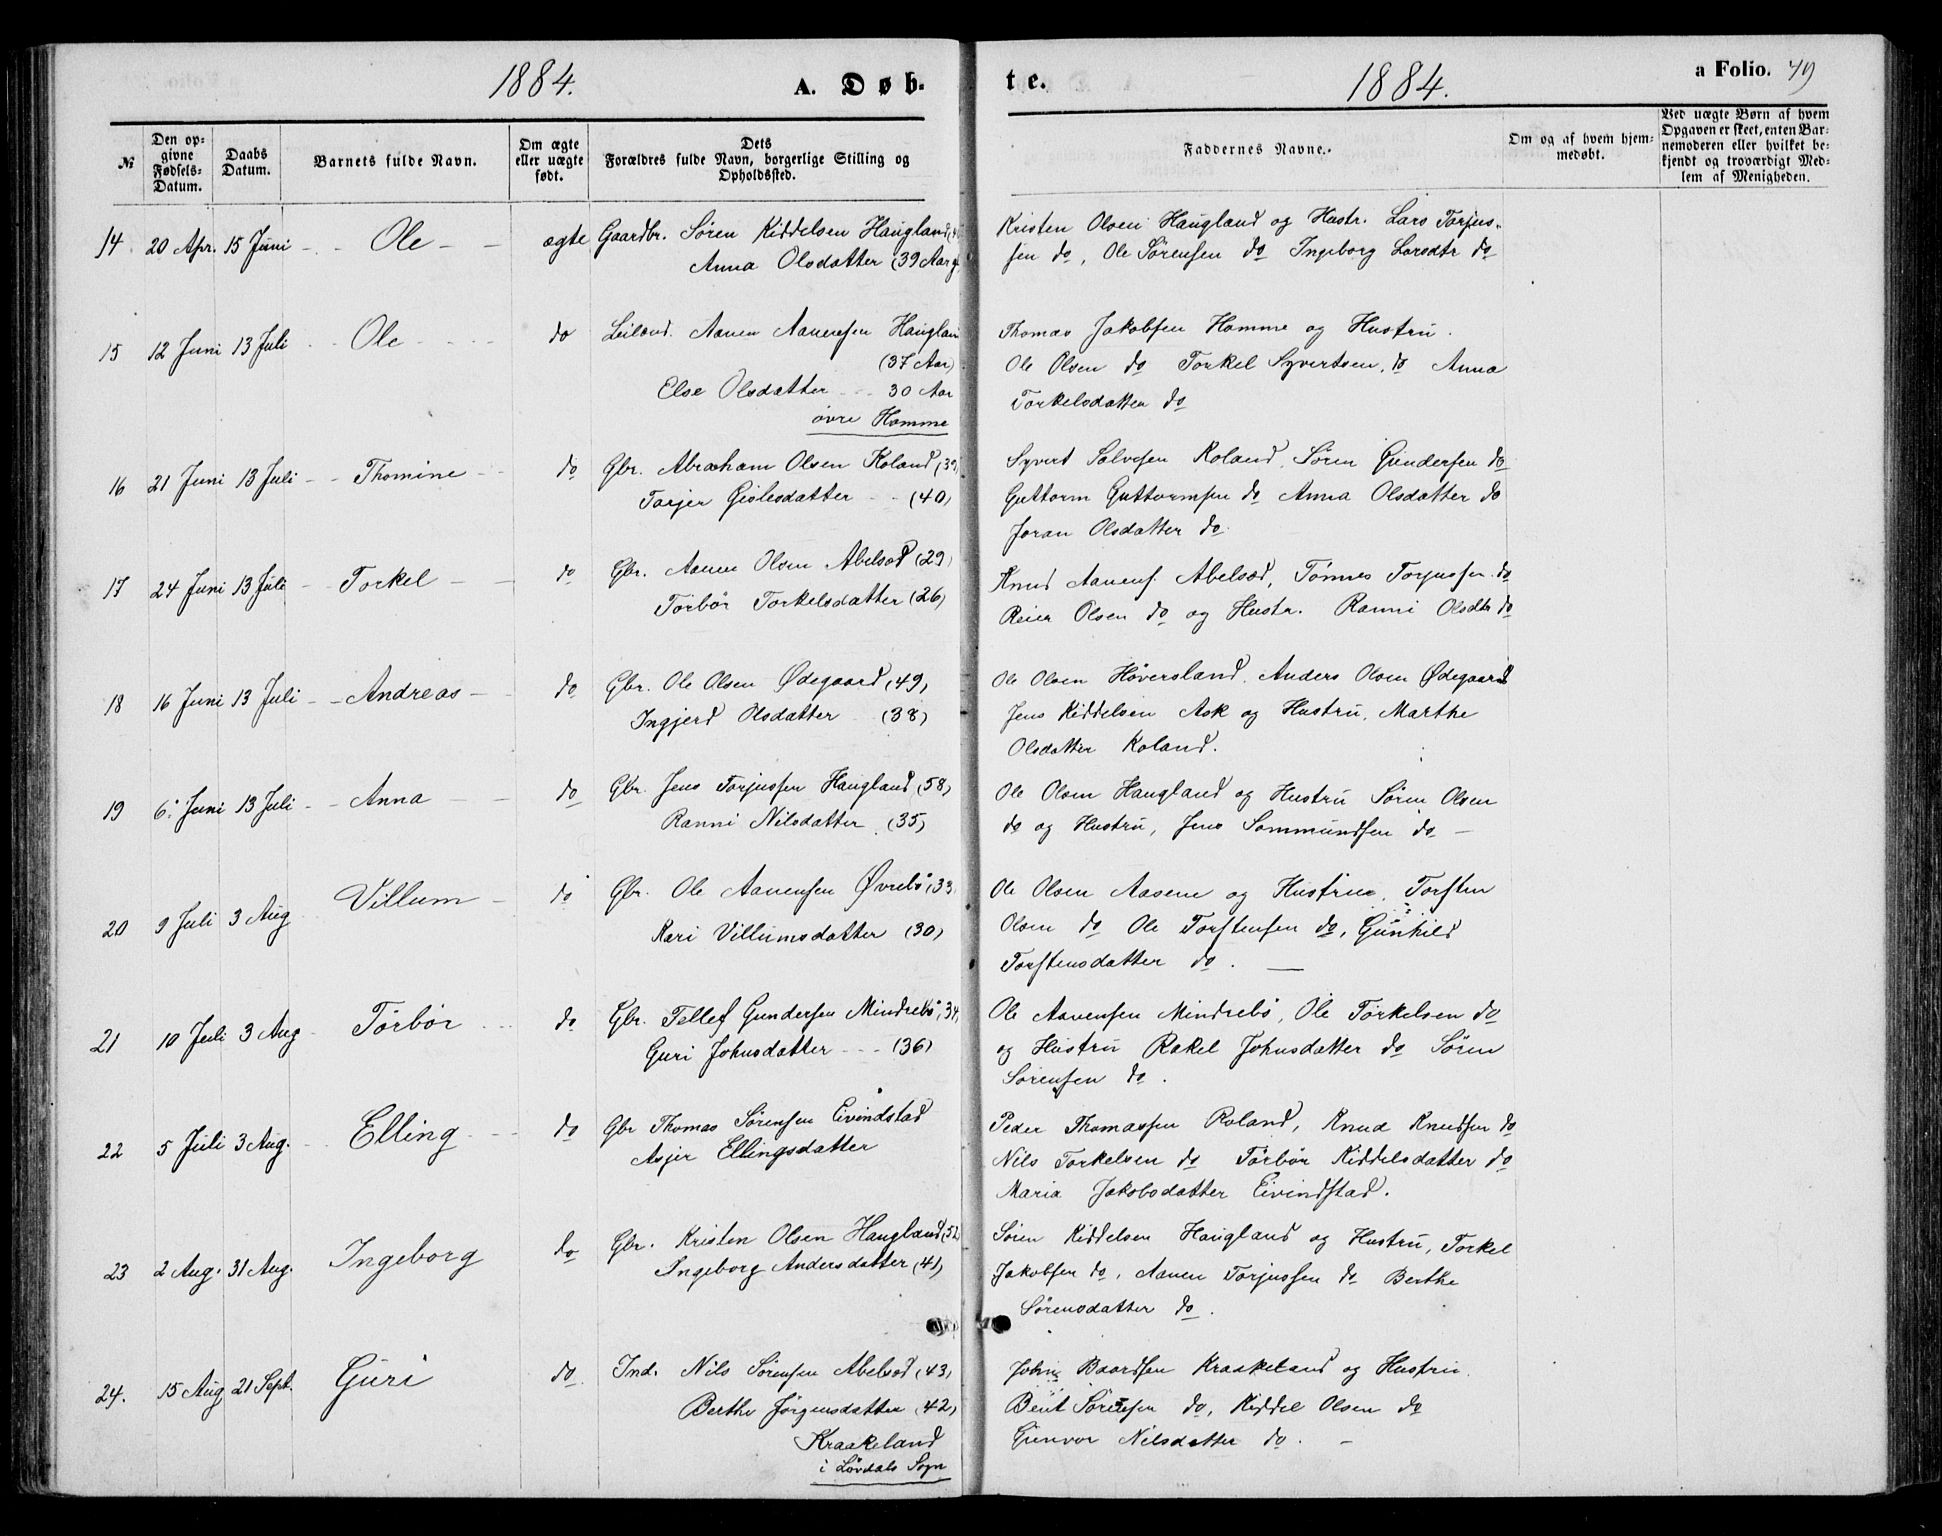 1884. A. Døb-
te. 1884. a Folio. 79
№
Den op-
givne
Fødsels-
Datum.
Daabs
Datum.
Barnets fulde Navn.
Om ægte
eller uægte
født.
Dets
Forældres fulde Navn, borgerlige Stilling og
Opholdssted.
Faddernes Navne.
Om og af hvem hjem-
medøbt.
Ved uægte Børn af hvem
Opgaven er skeet, enten Bar-
nemoderen eller hvilket be-
kjendt og troværdigt Med-
lem af Menigheden.
14. 20 Apr. 15 Juni Ole ægte Gaardbr. Søren Kiddelsen Haugland
Anna Olsdatter (39 Aar g
Kristen Olsen Haugland og Hustr. Lars Torjus-
sen do, Ole Sørensen do Ingeborg Larsdtr do
15 12 Juni 13 Juli Ole do Leilænd. Aanen Aanensen Hauglan
(37 Aar)
Else Olsdatter 30 Aar
øvre Homme
Thomas Jakobsen Homme og Hustru.
Ole Olsen do Torkel Syvertsen do Anna
Torkelsdatter do
16 21 Juni 13 Juli Thomine do Gbr. Abraham Olsen Roland (39
Tarjer Gislesdatter (40)
Syvert Salvesen Roland, Søren Gundersen do
Guttorm Guttormsen do Anna Olsdatter do
Joran Olsdatter do.
17 24 Juni 13 Juli Torkel do Gbr. Aanen Olsen Abelsæd (29)
Torbør Torkelsdatter (26)
Knud Aanens. Abelsæd, Tønnes Torjussen do
Reier Olsen do og Hustr. Ranni Olsdtr do
18 16 Juni 13 Juli Andreas do Gbr. Ole Olsen Ødegaard (49)
Ingjerd Olsdatter (38)
Ole Olsen Høversland, Anders Olsen Ødegaard
Jens Kiddelsen Ask og Hustru, Marthe
Olsdatter Roland.
19 6. Juni 13 Juli Anna do Gbr. Jens Torjussen Haugland (58)
Ranni Nilsdatter (35)
Ole Olsen Haugland og Hustru Søren Olsen
do og Hustru, Jens Sommundsen do
20 9 Juli 3 Aug Villum do Gbr. Ole Aanensen Øvrebø (33
Kari Villumsdatter (30)
Ole Olsen Aasene og Hustrue, Torsten
Olsen do Ole Torstensen do, Gunhild
Torstensdatter do.
21 10 Juli 3 Aug Torbør do Gbr. Tellef Gundersen Mindrebø (34,
Guri Johnsdatter (36)
Ole Aanensen Mindrebø, Ole Torkelsen do
og Hustru Rakel Johnsdatter do Søren
Sørensen do.
22 5 Juli 3 Aug. Elling do Gbr Thomas Sørensen Eivindstad
Asjer Ellingsdatter
Peder Thomassen Roland, Knud Knudsen do
Nils Torkelsen do Torbør Kiddelsdatter do
Maria Jakobsdatter Eivindstad.
23 2 Aug. 31 Aug. Ingeborg do Gbr. Kristen Olsen Haugland (52
Ingeborg Andersdatter (41)
Søren Kiddelsen Haugland og Hustru, Torkel
Jakobsen do, Aanen Torjussen do Berthe
Sørensdatter do.
24. 15 Aug 21 Sept. Guri do. Ind. Nils Sørensen Abelsæd (43)
Berthe Jørgensdatter (42)
Kraakeland
i Løvdals Sogn
John Baardsen Kraakeland og Hustru.
Bent Sørensen do, Kiddel Olsen do
Gunvor Nilsdatter do.